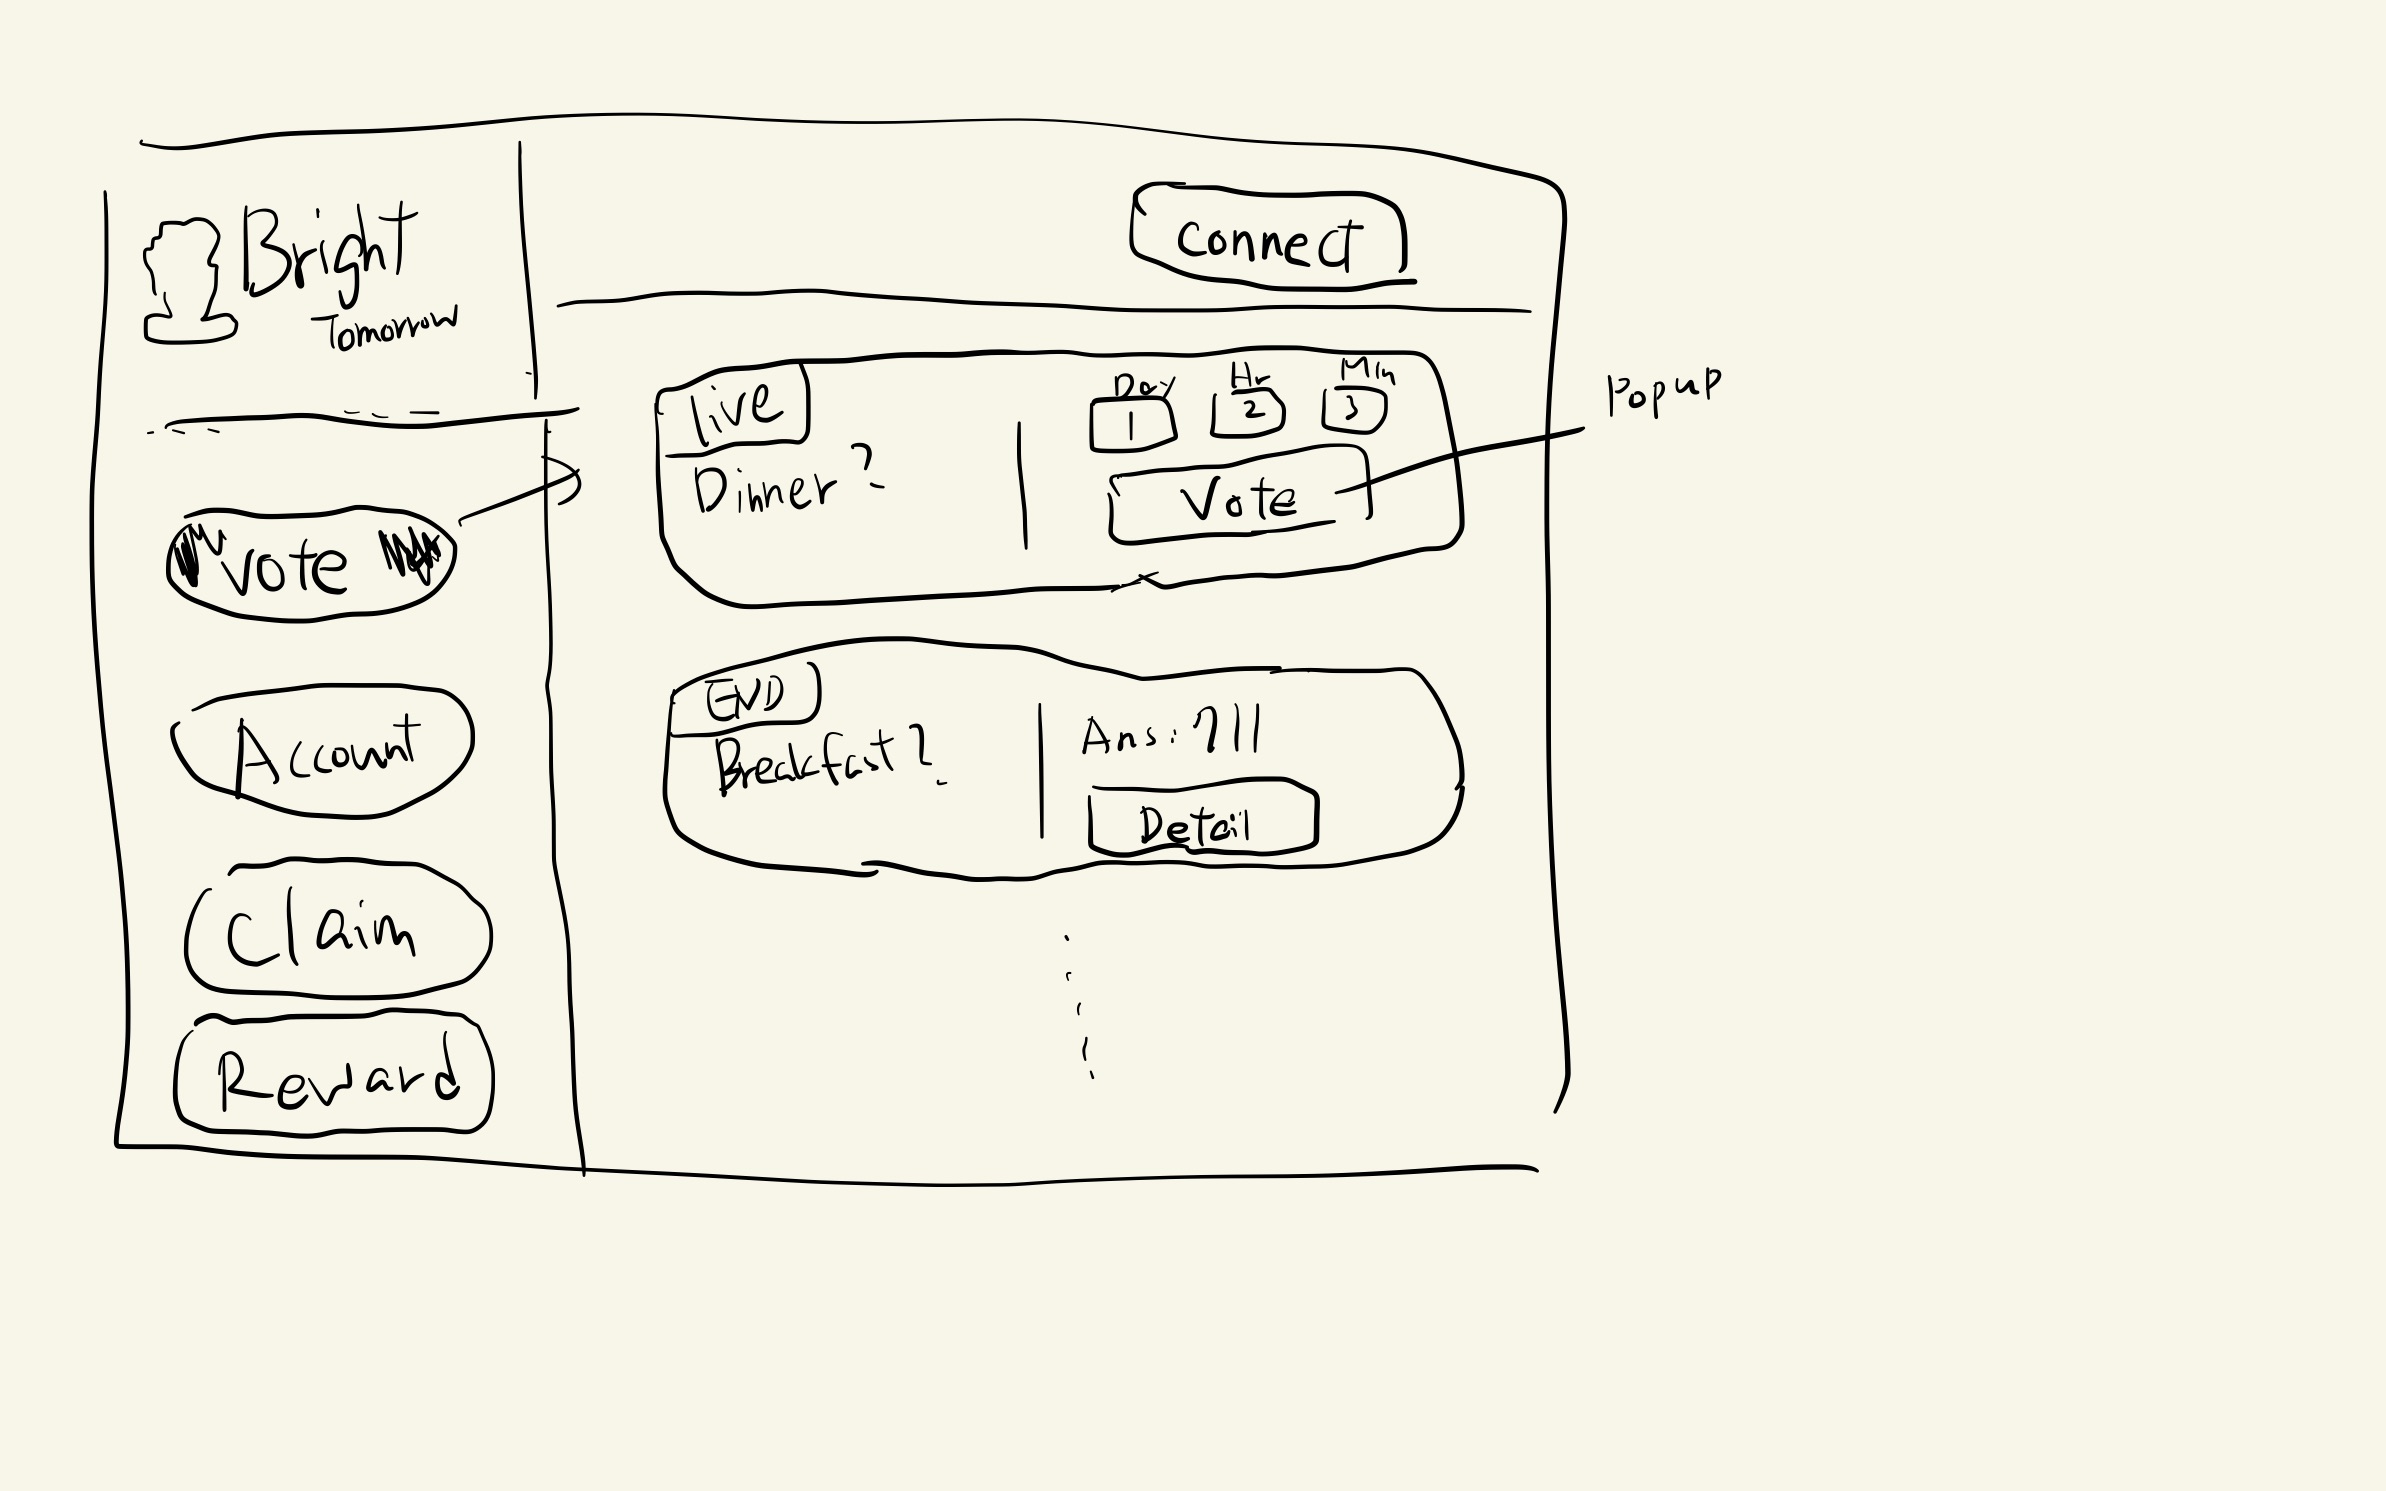 Bright
Tomorrow
Connect
Vote
Account
Claim
Reward
Live
Dinner?
Day
Hr
Min
1
2
3
Vote
Popup
END
Breakfast?
Ans: 711
Detail